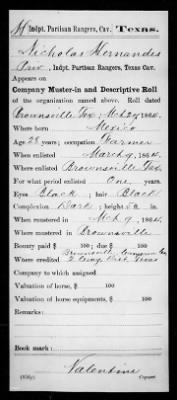 H Indpt. Partisan Rangers, Cav. Texas.
Nicholas Hernandes
Priv, Indpt. Partisan Rangers, Texas Cav.
Appears on
Company Muster-in and Descriptive Roll
of the organization named above. Roll dated
Brownsville Tex, Mch 29, 1864.
Where born Mexico
Age 28 years; occupation Farmer
When enlisted March 9, 1864.
Where enlisted Brownsville Tex.
For what period enlisted One years.
Eyes Black; hair Black
Complexion Dark; height 5 ft. in.
When mustered in Mch 9, 1864.
Where mustered in Brownsville
Bounty paid $ 100; due $ 100
Where credited Brownsville Tex
2 Cong. Dist. Texas
Company to which assigned
Valuation of horse, $ 100
Valuation of horse equipments, $ 100
Remarks:
Book mark:
Valentine
Copyist.